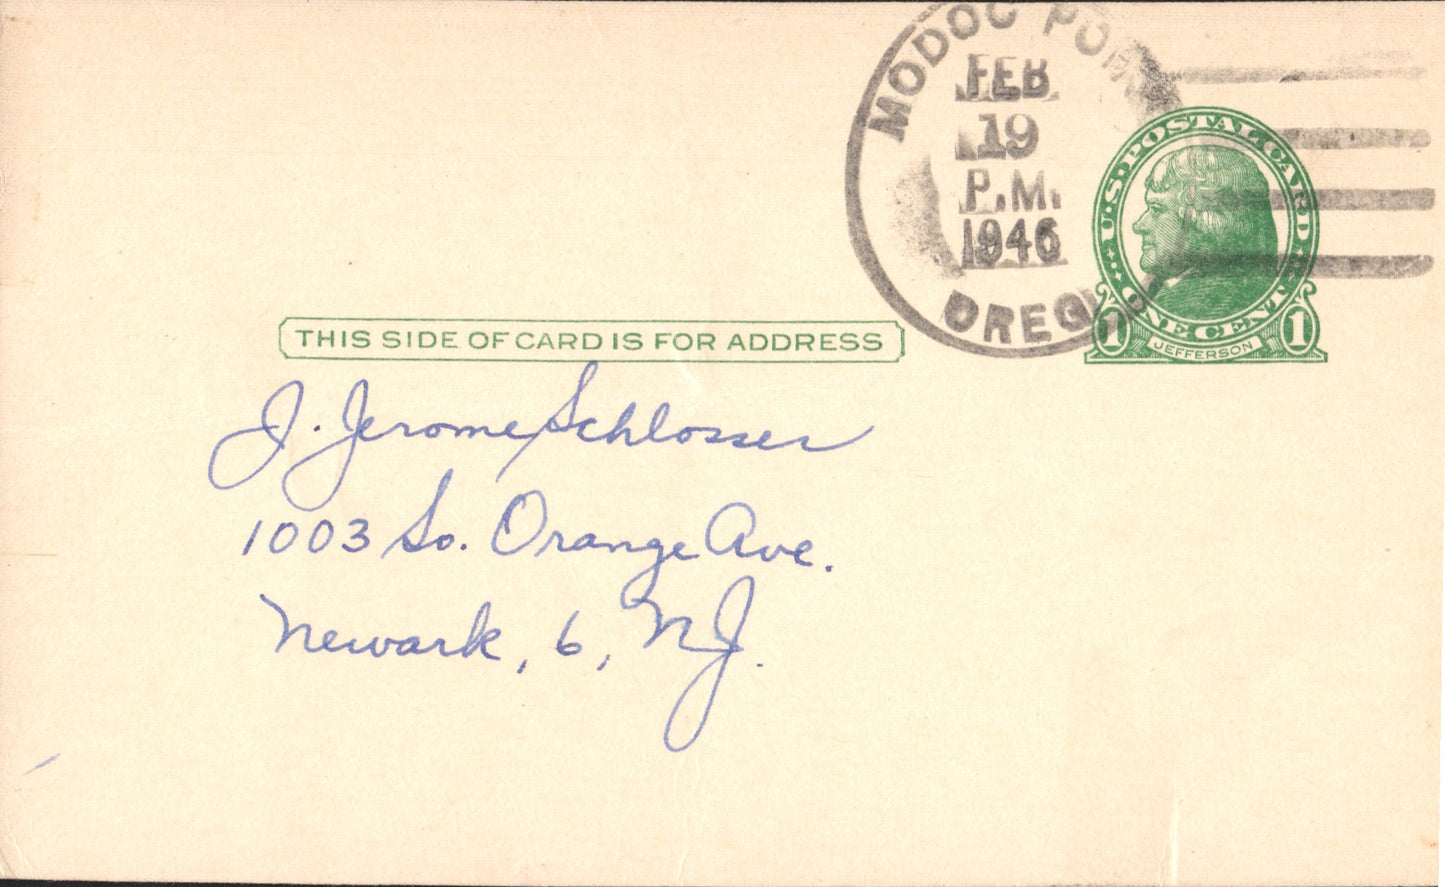 MODOC POINT
FEB
19
P.M.
1946
OREG.
U.S. POSTAL CARD
ONE CENT
1 JEFFERSON 1
THIS SIDE OF CARD IS FOR ADDRESS
J. Jerome Schlosser
1003 So. Orange Ave.
Newark, 6, NJ.